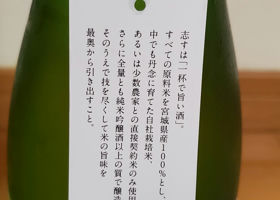 志すは「一杯で旨い酒」。
すべての原料米を宮城県産100%とし、
中でも丹念に育てた自社栽培米、
あるいは少数農家との直接契約米のみ使用
さらに全量とも純米吟醸酒以上の質で醸造
そのうえで技を尽くして米の旨味を
最奥から引き出すこと。